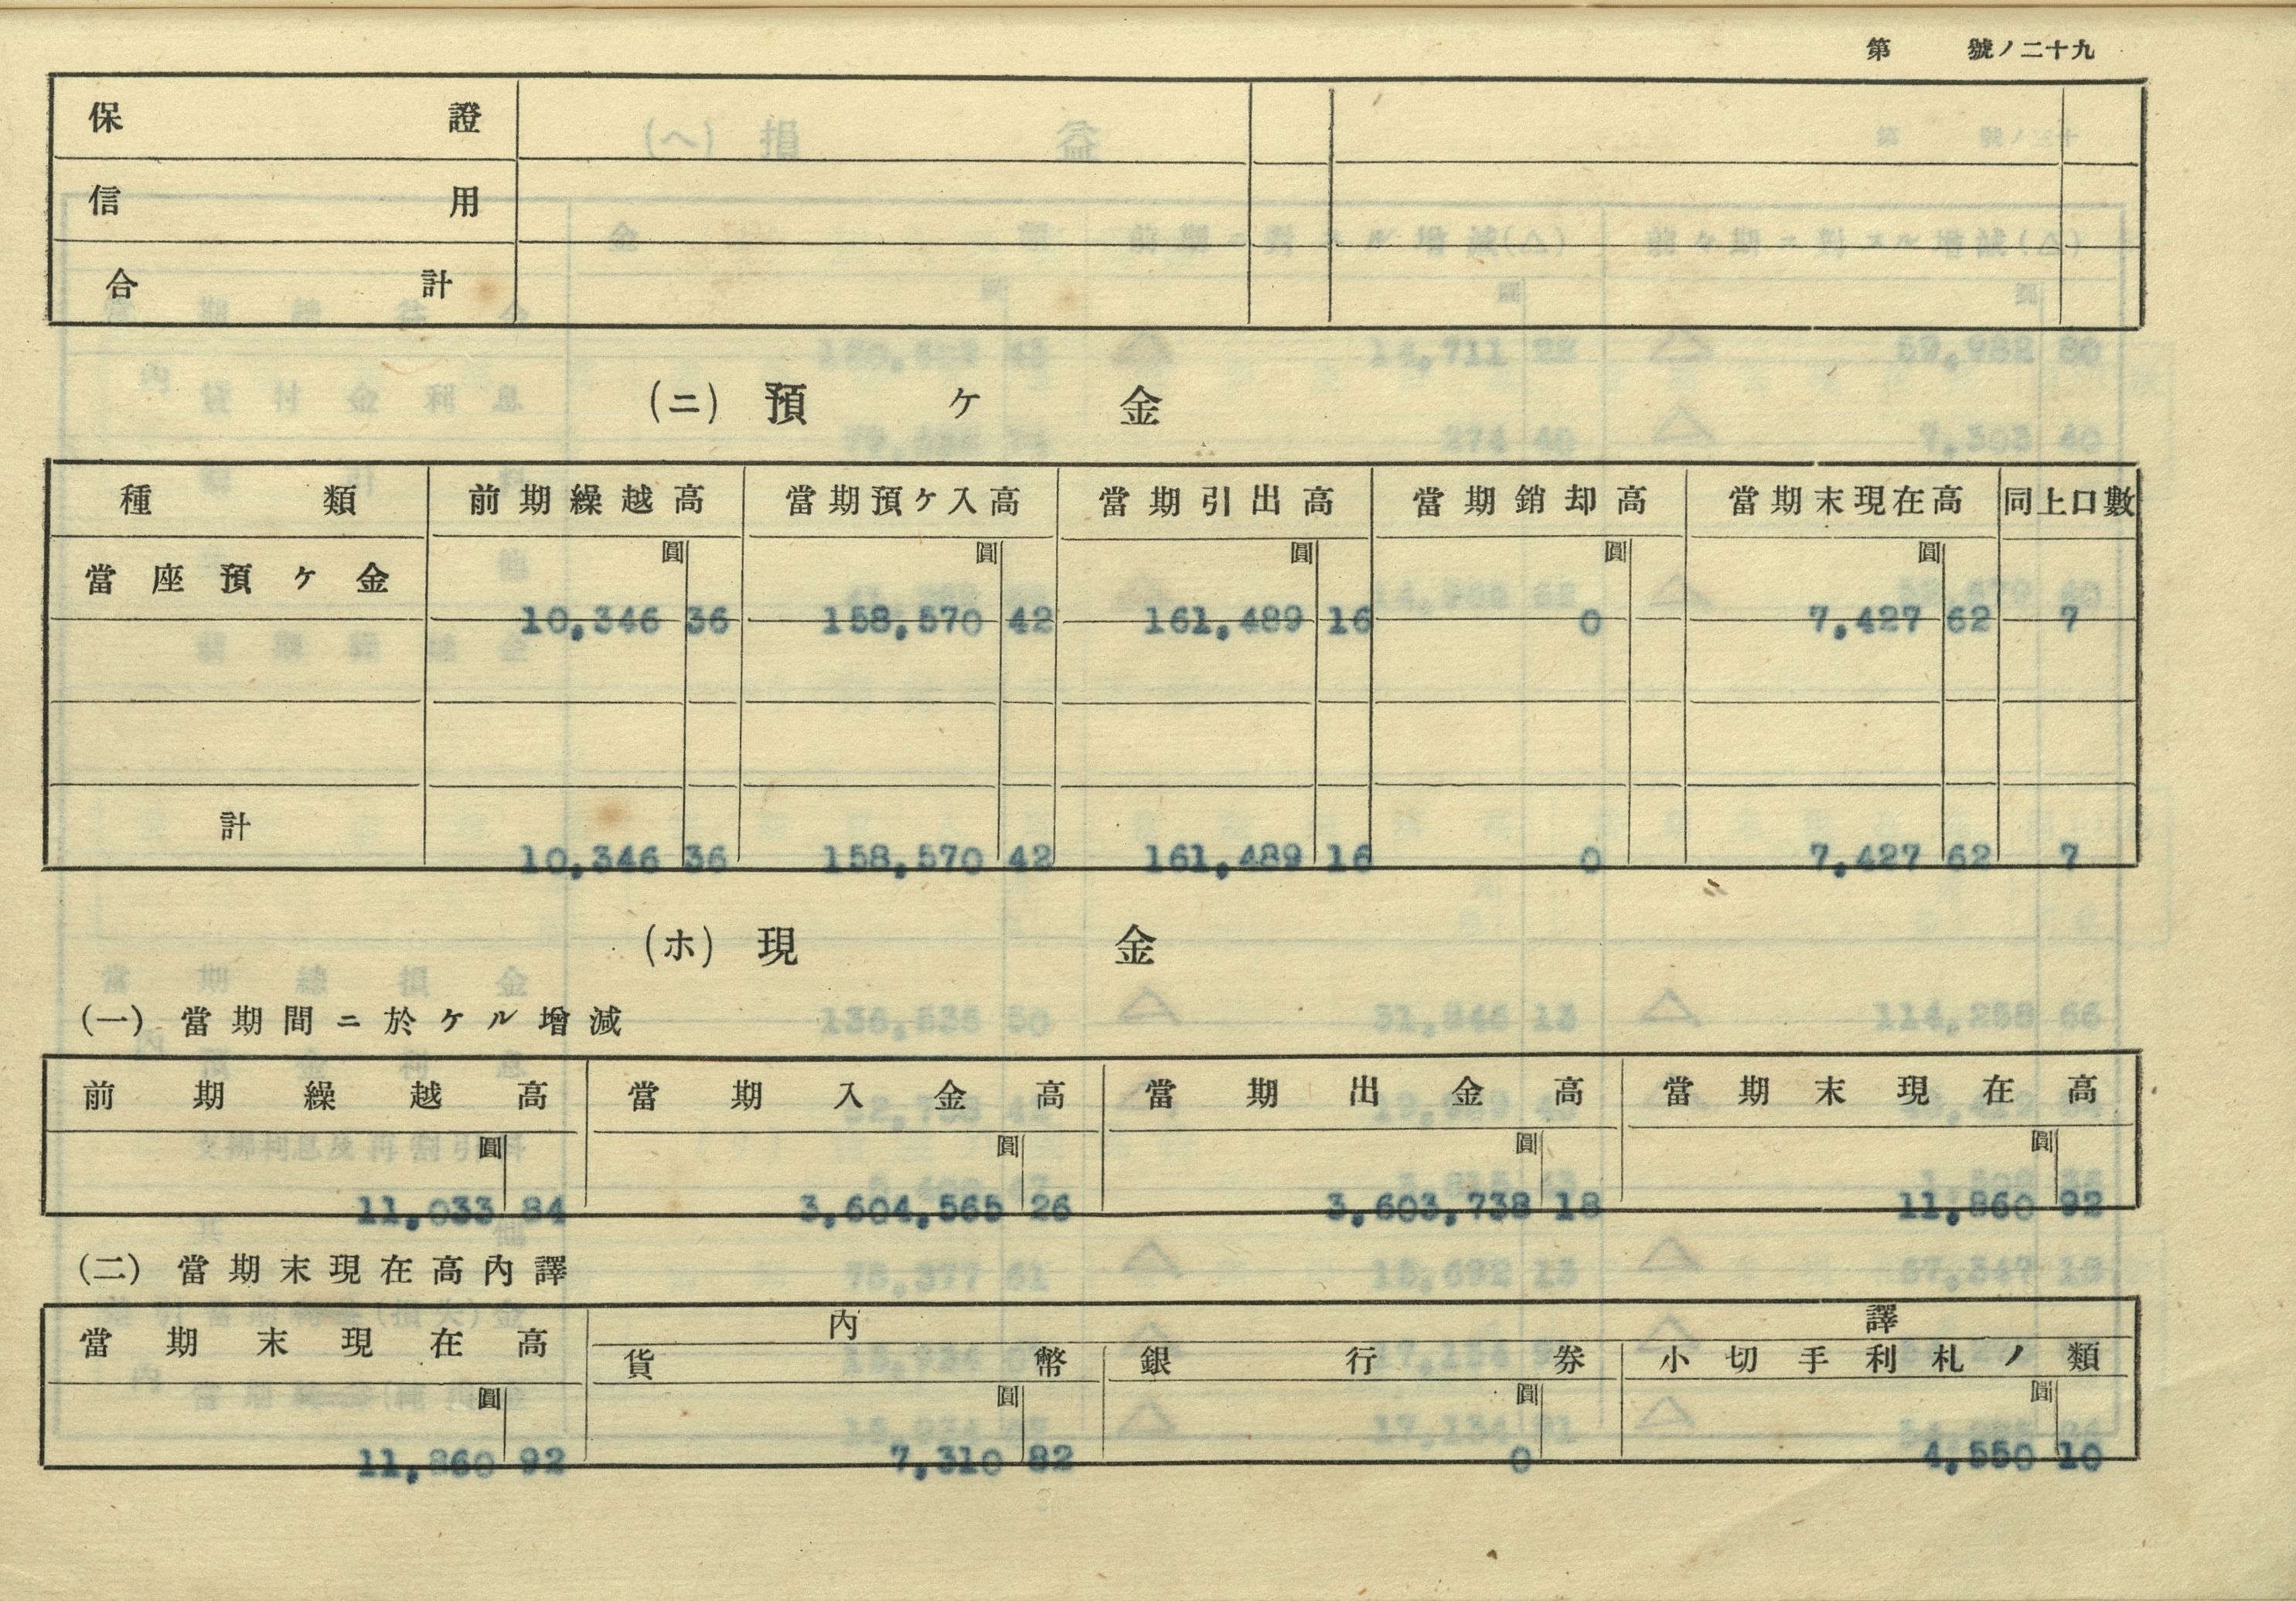 第 號ノ二十九
保證
信用
合計
(ニ) 預ケ金
種類 前期繰越高 當期預ケ入高 當期引出高 當期銷却高 當期末現在高 同上口數
圓 圓 圓 圓 圓
當座預ケ金 10,346 36 158,570 42 161,489 16 0 7,427 62 7
計 10,346 36 158,570 42 161,489 16 0 7,427 62 7
(ホ) 現金
(一) 當期間ニ於ケル增減
前期繰越高 當期入金高 當期出金高 當期末現在高
圓 圓 圓 圓
11,033 84 3,604,565 26 3,603,738 18 11,860 92
(二) 當期末現在高內譯
當期末現在高 內譯
貨幣 銀行券 小切手利札ノ類
圓 圓 圓 圓
11,860 92 7,310 82 0 4,550 10